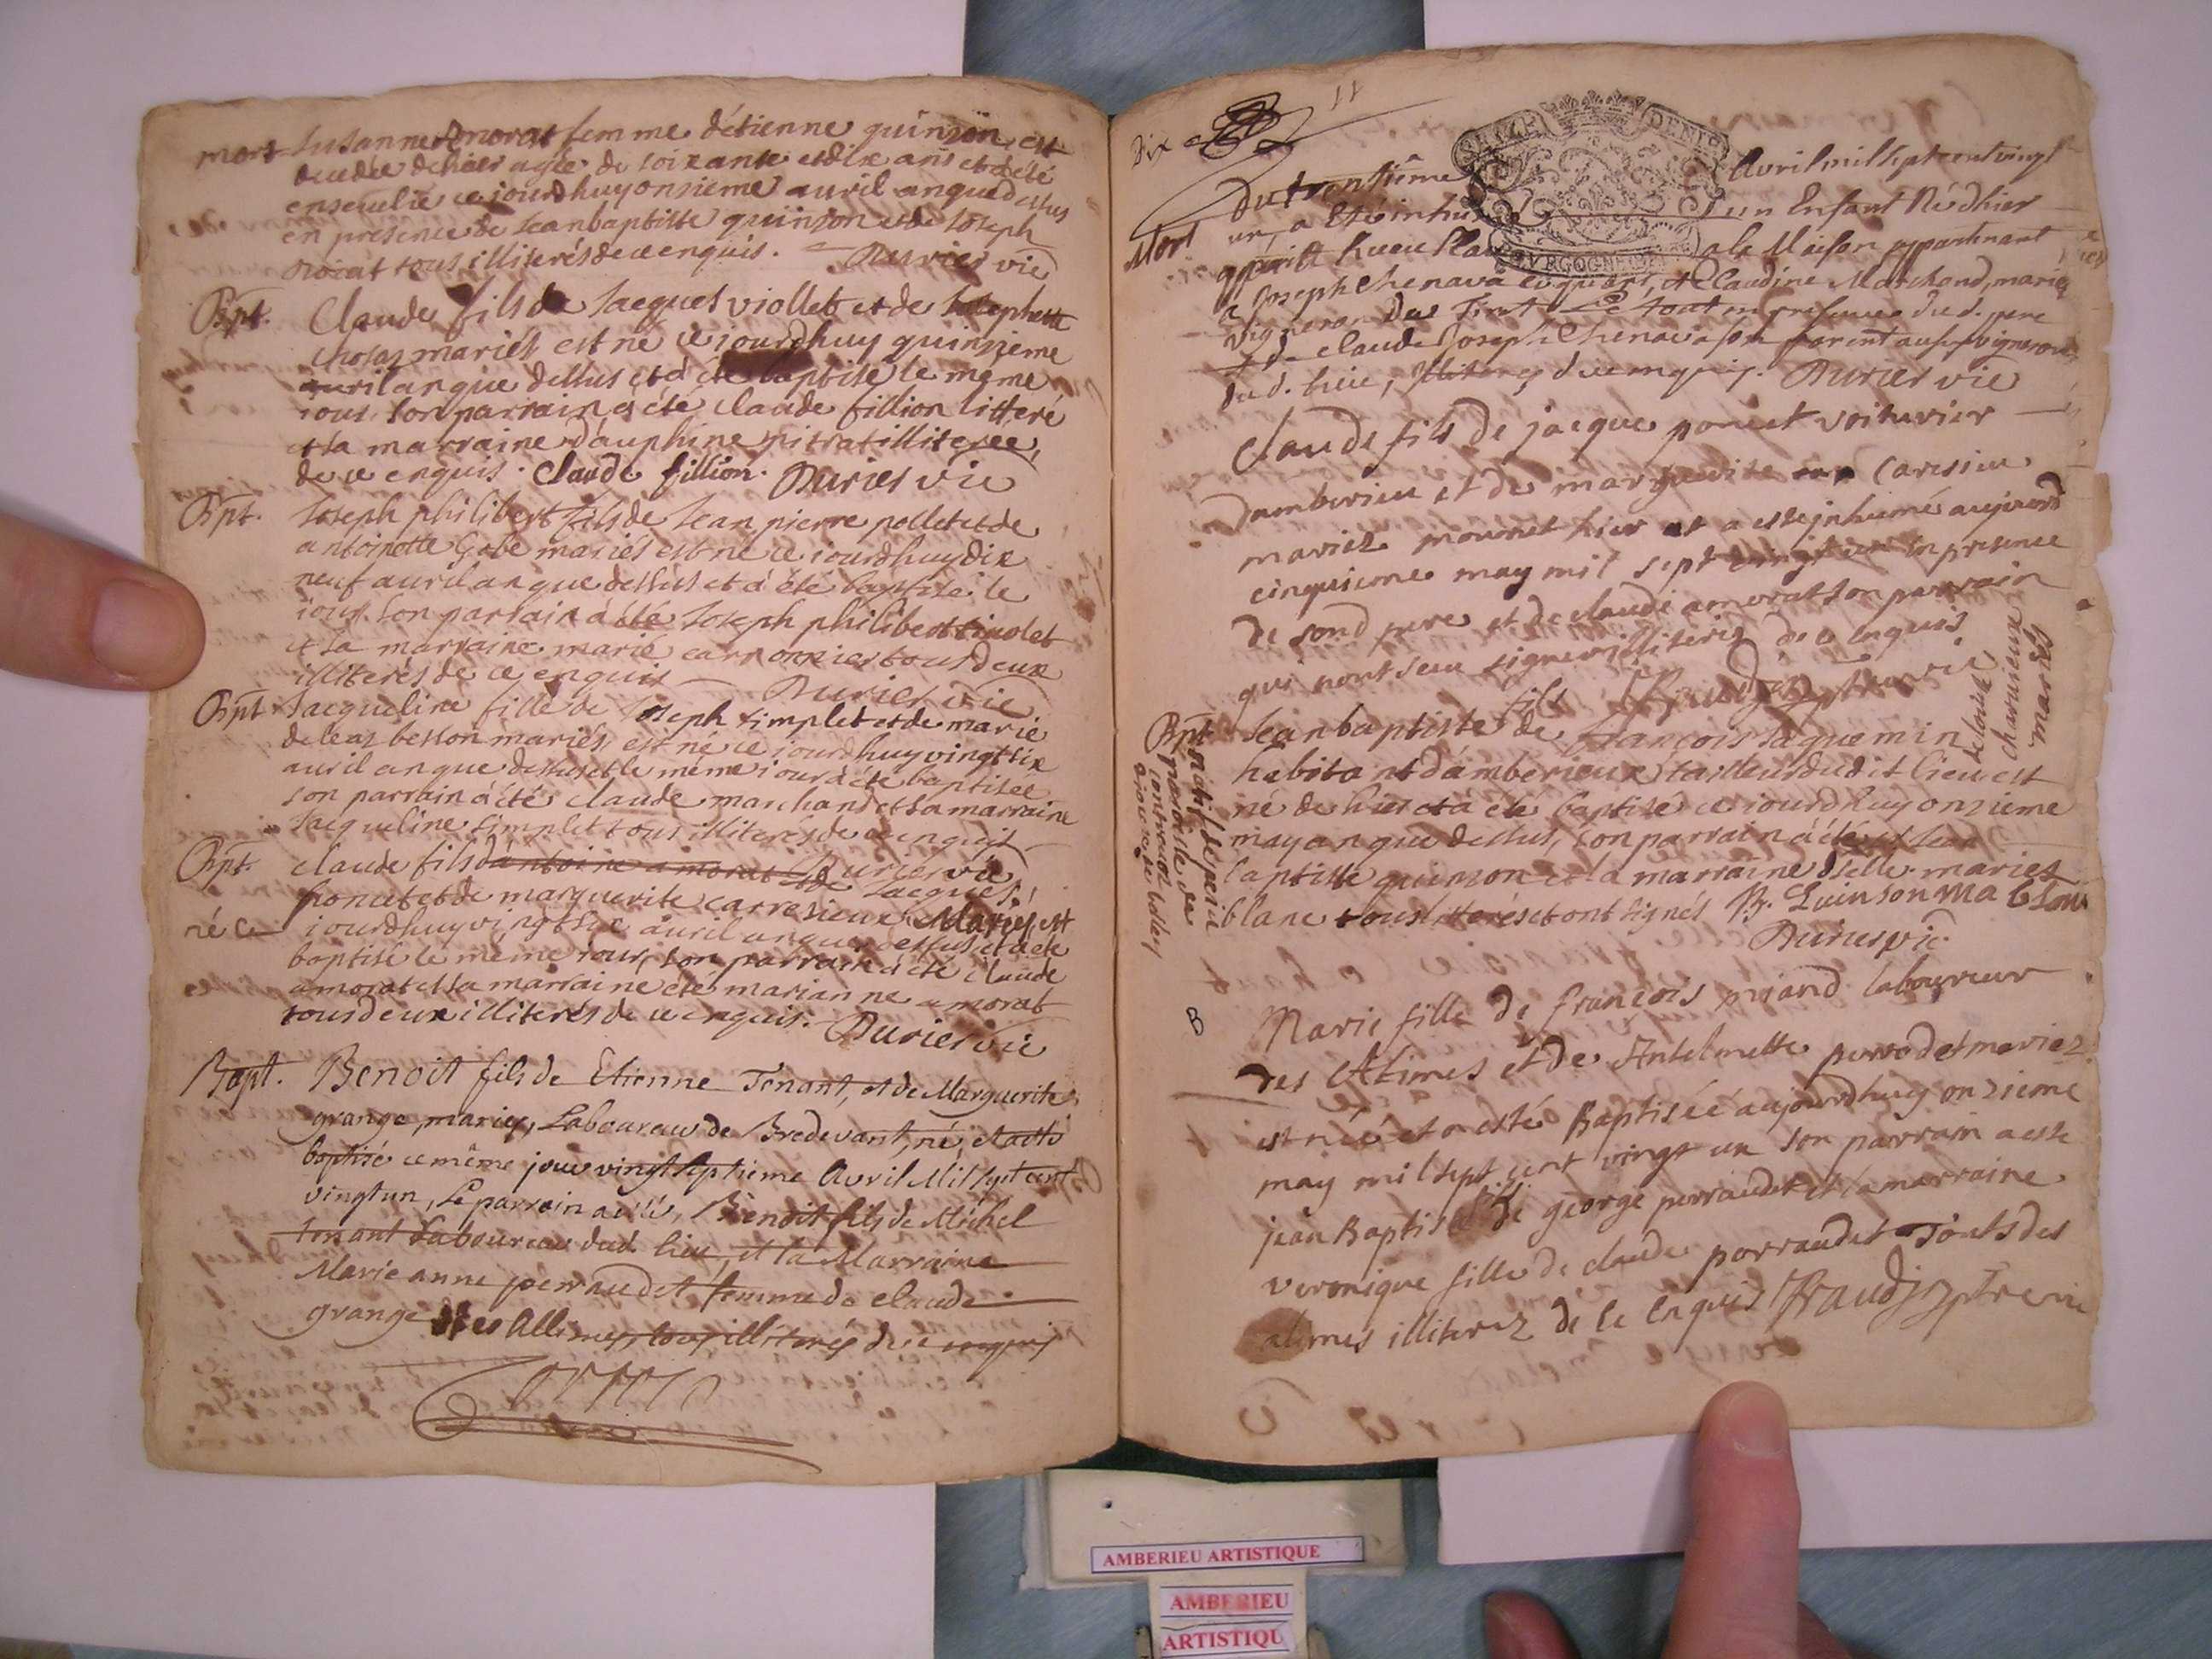 mort Susanne amorat femme détienne quinson est
decedée dehier agée de soixante et dix ans et a été
ensevelie ce jourdhuy onsieme auril anque dessus
en presence de Jean baptiste quinson et de Joseph
tous illiterés de ce enquis. Durier vic
Bpt. Claude fils de Jacques viollet et de Josephette
mariés est né ce jourdhuy quinzieme
auril an que dessus et a été baptisé le meme
iour, son parrain a été Claude fillion litteré
et sa marraine dauphine pitrat illiterée,
de ce enquis. Claude fillion. Durier vic
Bpt. Joseph philibert fils de Jean pierre pollet et de
antoinette Gobe mariés est né ce iourdhuy dix
neuf auril an que dessus et a été baptisé le
iour. son parrain a été Joseph philibert
et sa marraine marie carronnier tous deux
illiterés de ce enquis Durier vic
Bpt. Jacqueline fille de Joseph simplet et de marie
beston mariés, est né ce iourdhuy vingt six
auril an que dessus et le même iour a été baptisée
son parrain a été claude marchand et sa marraine
Jacqueline simplet tous illiterés de ce enquis
Bpt. claude fils d'antoine amorat et de Durier vic
Jacques
poncet et de marguerite carresieux Mariés, est
né ce iourdhuy vingt six auril an que dessus et a été
baptisé le meme iour, son parrain a été claude
amorat et sa marraine été marianne amorat
tous deux illiterés de ce enquis. Durier vic
Bapt. Benoit fils de Etienne Tenant, et de Marguerite
grange, mariez, Laboureur de Bredevant, né, et a été
baptisé ce même jour vingt septieme Avril Mil sept cent
vingt un, Le parrain a été, Benoit fils de Michel
tenant Laboureur dud. lieu, et la Marraine
Marie anne perraudet femme de claude
grange des Allimes, tous illiterés de ce enquis
Dix 11
Du trentième Avril mil sept cent vingt
Mort un, a Eté inhumé un Enfant Né d'hier
a la Maison appartenant
a Joseph Chenava et Claudine Marchand, mariez
vigneron Le tout en presence dud. pere
& de claude Joseph Chenava son parent aussi vigneron
dud. lieu, illiterez de ce enquis. Durier vic
Claude fils de jacque poncet voiturier
Damberieu et de marguerite caresieu
mariez mourut hier et a esté inhumé aujourd
cinquieme may mil sept vingt un en presence
de sond pere et de claude amorat son parrain
qui nont seu signer illiterez de ce enquis
Bpt Jean baptiste fils de françois Jaquemin de Louise charuieux mariés
habitant dámberieux tailleur dudit lieu est
né de hier et a été baptisé ce iourdhuy onzieme
may an que dessus, son parrain a été Jean
baptiste quinson et la marraine dselle marie
blanc tous literés et ont signés B. Quinson Ma blanc
Durier vic.
B Marie fille de françois pijand laboureur
des Alimes et de Antelmette perrodet mariez
est née et a esté Baptisée aujourdhuy onzieme
may mil sept cent vingt un son parrain a esté
jean Baptiste fils de george perraudet et la marraine
veronique fille de claude perraudet touts des
alimes illiterez de ce enquis
SEIZE DENIERS
BOURGOGNE
AMBERIEU ARTISTIQUE
AMBERIEU
ARTISTIQU